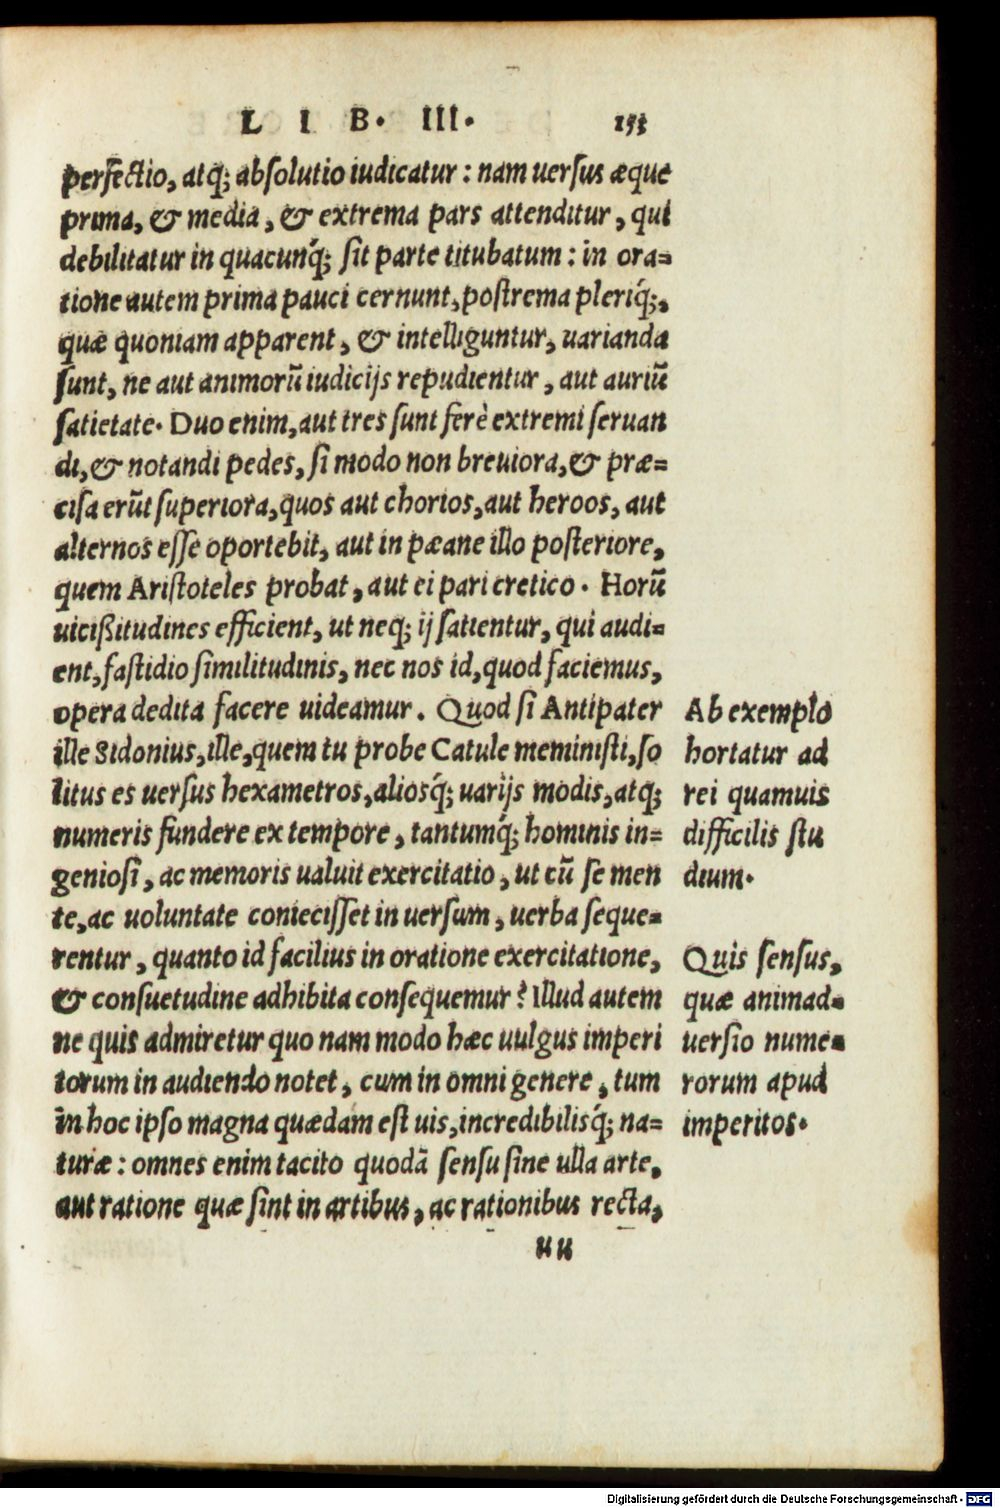 LIB. III. 153
perfectio, atq; absolutio iudicatur : nam uersus æque
prima, & media, & extrema pars attenditur, qui
debilitatur in quacunq́; sit parte titubatum : in ora=
tione autem prima pauci cernunt, postrema pleriq́;,
quæ quoniam apparent, & intelliguntur, uarianda
sunt, ne aut animorũ iudicijs repudientur, aut auriũ
satietate. Duo enim, aut tres sunt ferè extremi seruan
di, & notandi pedes, si modo non breuiora, & præ=
cisa erũt superiora, quos aut chorios, aut heroos, aut
alternos esse oportebit, aut in pæane illo posteriore,
quem Aristoteles probat, aut ei pari cretico. Horũ
uicißitudines efficient, ut neq; ij satientur, qui audi=
ent, fastidio similitudinis, nec nos id, quod faciemus,
opera dedita facere uideamur. Quod si Antipater
ille Sidonius, ille, quem tu probe Catule meministi, so
litus es uersus hexametros, aliosq́; uarijs modis, atq;
numeris fundere ex tempore, tantumq́; hominis in=
geniosi, ac memoris ualuit exercitatio, ut cũ se men
te, ac uoluntate coniecisset in uersum, uerba seque=
rentur, quanto id facilius in oratione exercitatione,
& consuetudine adhibita consequemur? Illud autem
ne quis admiretur quo nam modo hæc uulgus imperi
torum in audiendo notet, cum in omni genere, tum
in hoc ipso magna quædam est uis, incredibilisq́; na=
turæ : omnes enim tacito quodã sensu sine ulla arte,
aut ratione quæ sint in artibus, ac rationibus recta,
uu
Ab exemplo
hortatur ad
rei quamuis
difficilis stu
dium.
Quis sensus,
quæ animad=
uersio nume=
rorum apud
imperitos.
Digitalisierung gefördert durch die Deutsche Forschungsgemeinschaft - DFG